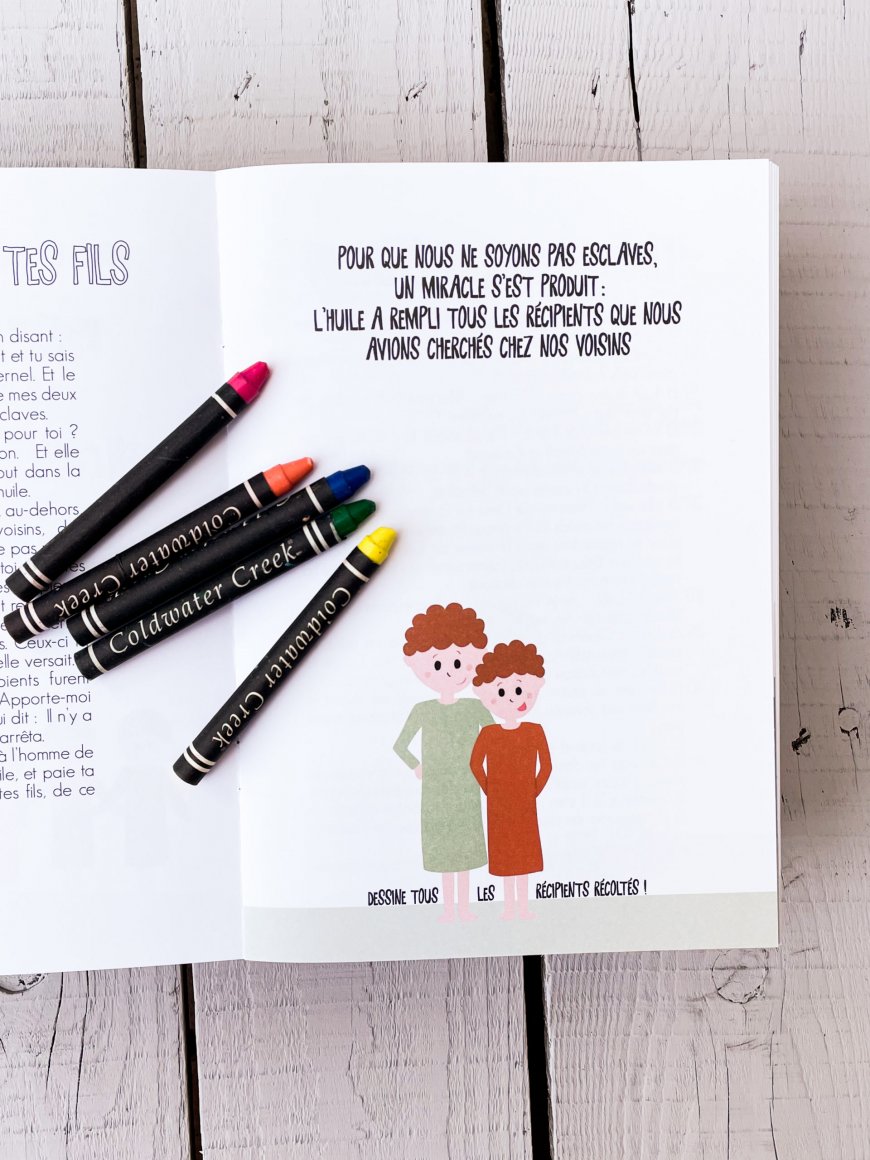 TES FILS
n disant :
t et tu sais
ernel. Et le
e mes deux
claves.
pour toi ?
on. Et elle
out dans la
huile.
au-dehors
voisins,
e pas
toi
es
t re
s. Ceux-ci
elle versait.
pients furent
Apporte-moi
ui dit : Il n'y a
arrêta.
à l'homme de
ile, et paie ta
tes fils, de ce
POUR QUE NOUS NE SOYONS PAS ESCLAVES,
UN MIRACLE S'EST PRODUIT :
L'HUILE A REMPLI TOUS LES RÉCIPIENTS QUE NOUS
AVIONS CHERCHÉS CHEZ NOS VOISINS
Coldwater Creek
Coldwater Creek
Coldwater Creek
DESSINE TOUS LES RÉCIPIENTS RÉCOLTÉS !